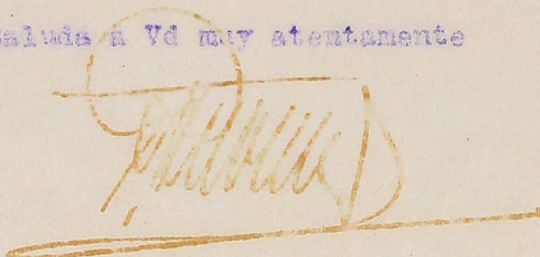 Saluda a Vd muy atentamente